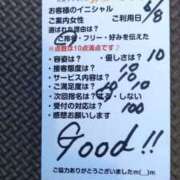 お客様のイニシャル
ご案内女性 ご利用日 6/8
選ばれた理由は？
ご指名・フリー・好みを伝えた
※点数は10点満点です♪
・容姿は？ 10 ・優しさは？ 10
・接客態度は？ 10
・サービス内容は？ 10
・ご満足度は？ 10
・次回指名は？ する・しない
・受付の対応は？ 100
感想お願いします
Good!!
ご協力ありがとうございましたm(__)m